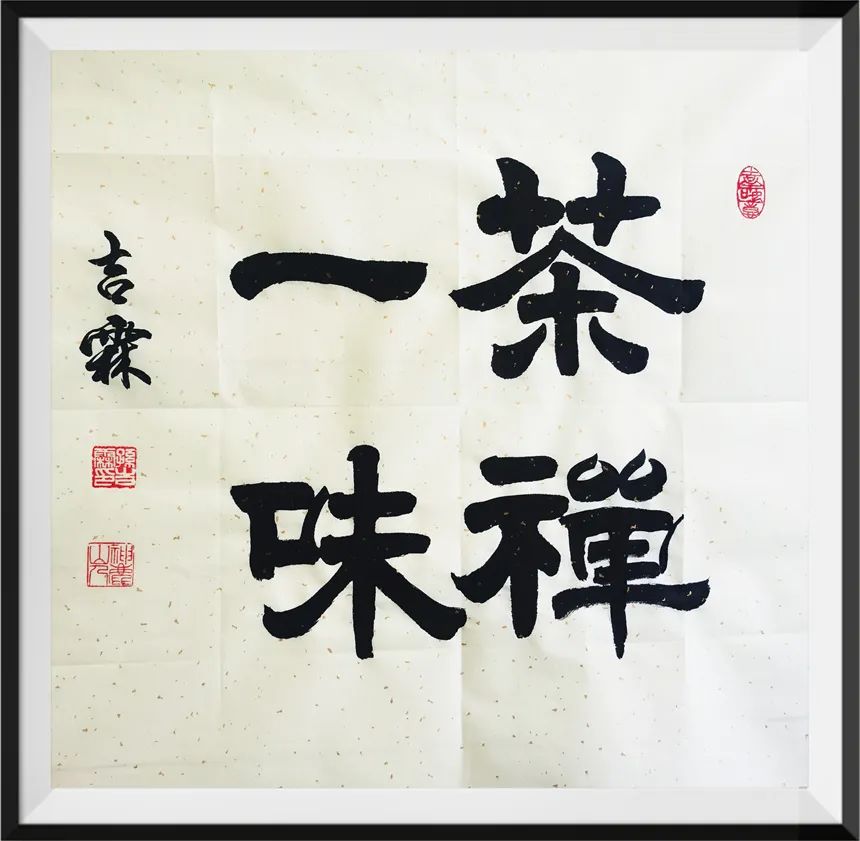 茶禪
一味
吉霖